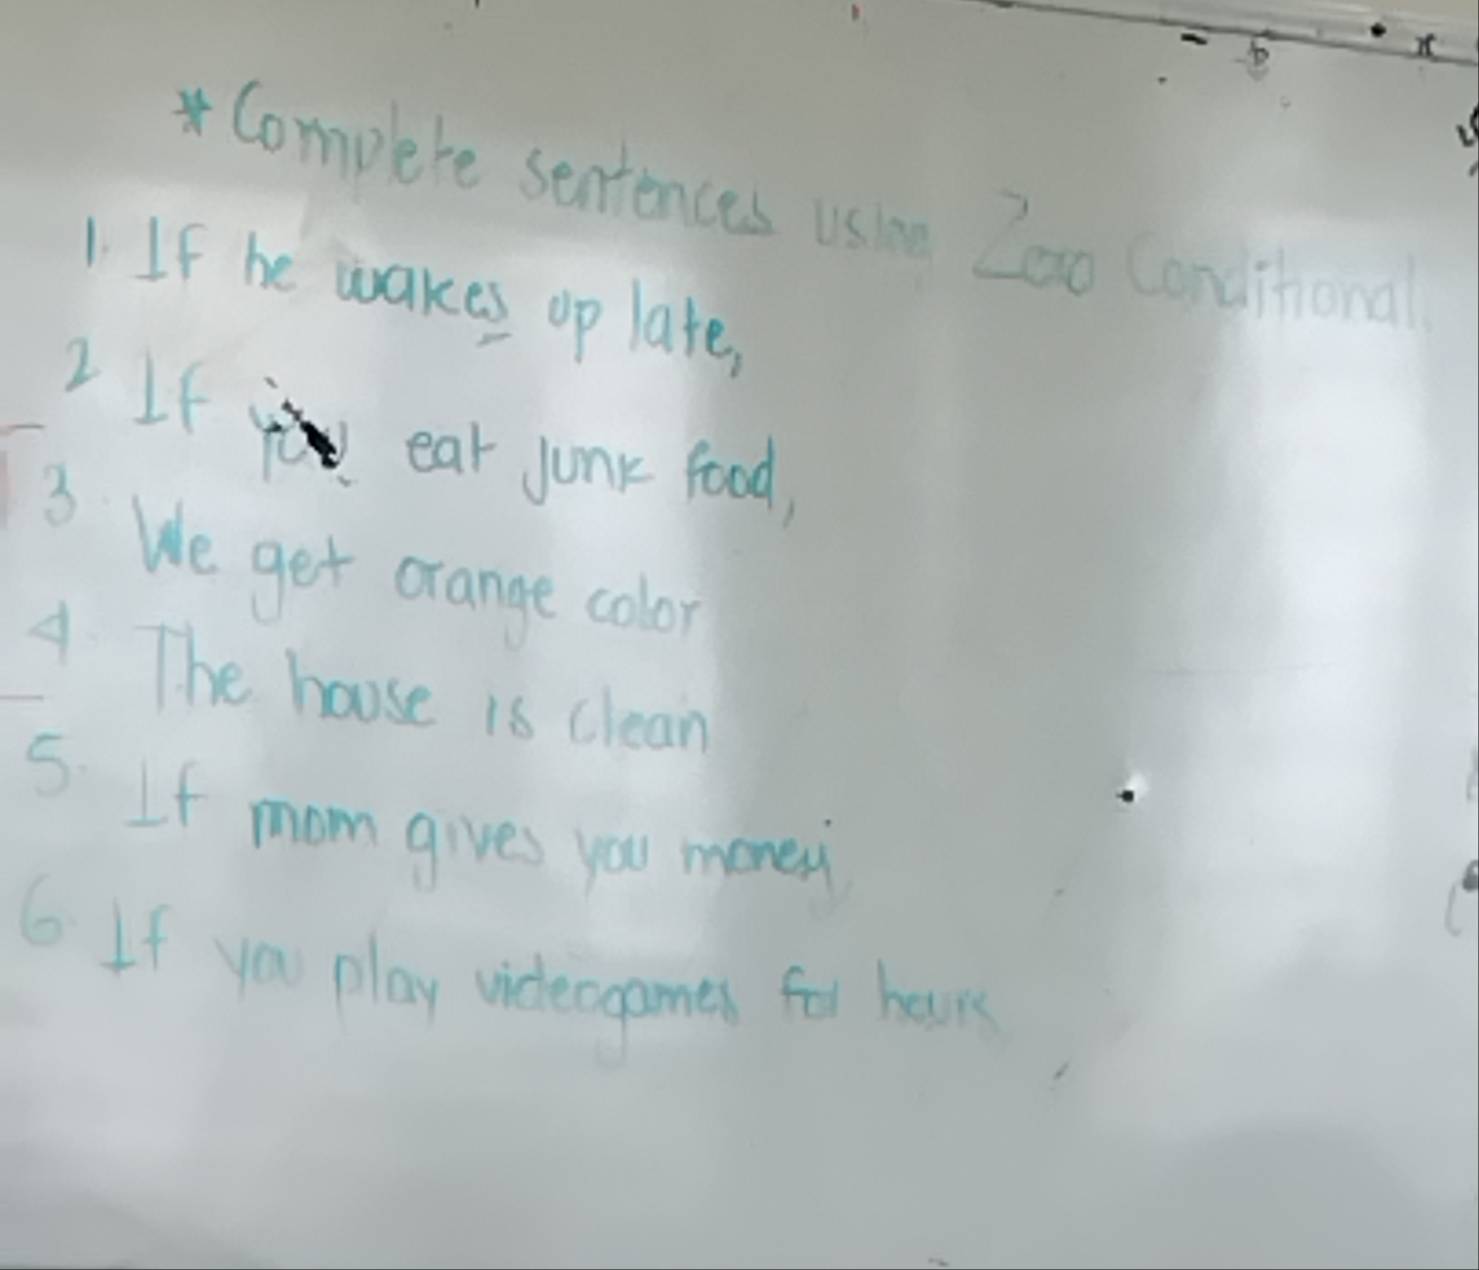 * Complete sentences using Zero Conditional.
1. If he wakes up late,
2 If you eat junk food,
3. We get orange color
4. The house is clean
5. If mom gives you money,
6. If you play videogames for hours